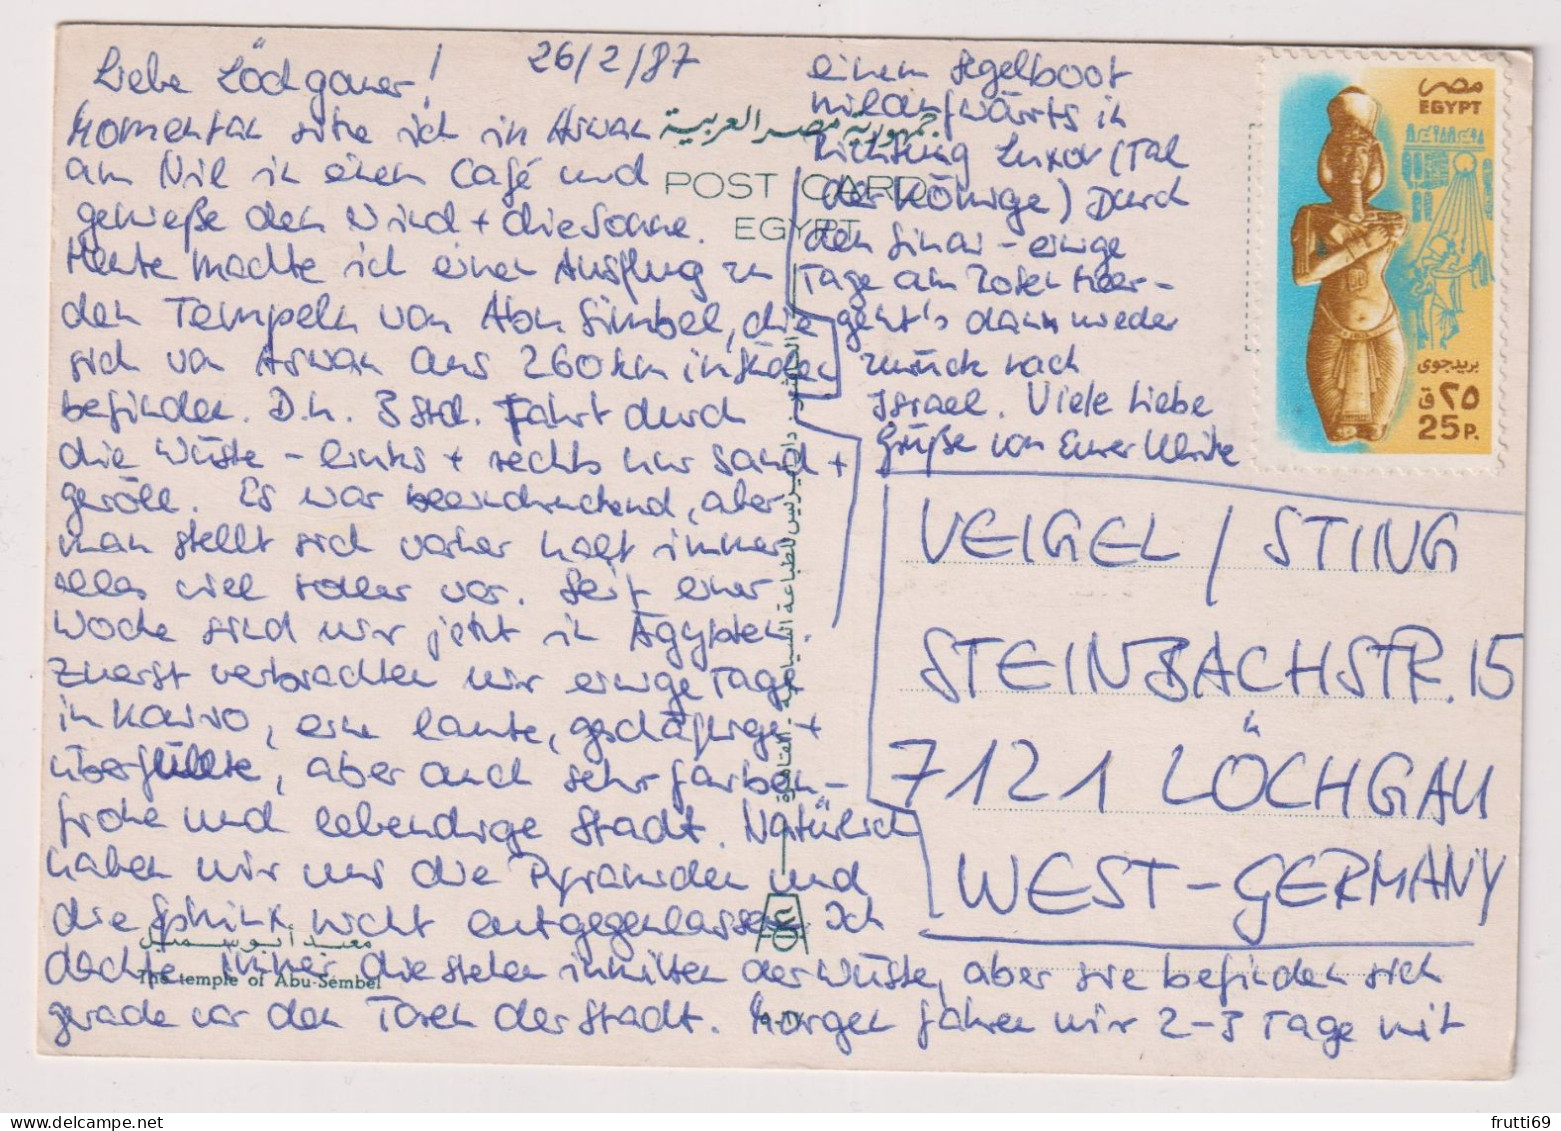 Liebe Löchgauer! 26/2/87
Momentan sitze ich in Aswan
am Nil in einem Café und
genieße den Wind + die Sonne.
Heute machte ich einen Ausflug zu
den Tempeln von Abu Simbel, die
sich von Aswan aus 260 km im Süden
befinden. D.h. 3 Std. Fahrt durch
die Wüste - links + rechts nur Sand +
Geröll. Es war beeindruckend, aber
man stellt sich vorher halt immer
alles viel toller vor. Seit einer
Woche sind wir jetzt in Ägypten.
Zuerst verbrachten wir einige Tage
in Kairo, eine laute, geschäftige +
überfüllte, aber auch sehr farben-
frohe und lebendige Stadt. Natürlich
haben wir uns die Pyramiden und
die Sphinx nicht entgegenlassen. Ich
dachte immer die stehen inmitten der Wüste, aber sie befinden sich
gerade vor den Toren der Stadt. Morgen fahren wir 2-3 Tage mit
einem Segelboot
nilaufwärts in
Richtung Luxor (Tal
der Könige) Durch
den Sinai - einige
Tage am Roten Meer -
geht's dann wieder
zurück nach
Israel. Viele liebe
Grüße von Eurer Ulrike
جمهورية مصر العربية
POST CARD
EGYPT
معبد أبو سمبل
The temple of Abu-Sembel
مصر
EGYPT
بريد جوى
٢٥ ق
25 P.
VEIGEL / STING
STEINBACHSTR. 15
7121 LÖCHGAU
WEST-GERMANY
frutti69